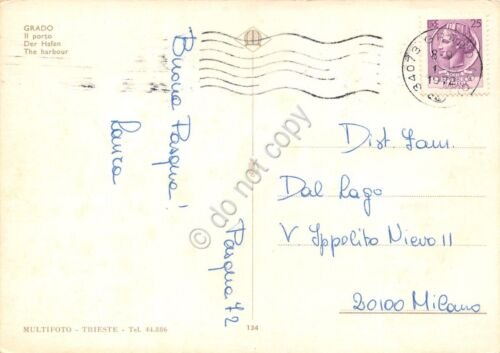 GRADO
Il porto
Der Hafen
The harbour
Buona Pasqua!
Laura
Pasqua 72
Dist. Fam.
Dal Lago
V Ippolito Nievo 11
20100 Milano
25
34073 G
1972
do not copy
MULTIFOTO - TRIESTE - Tel. 44.886
134